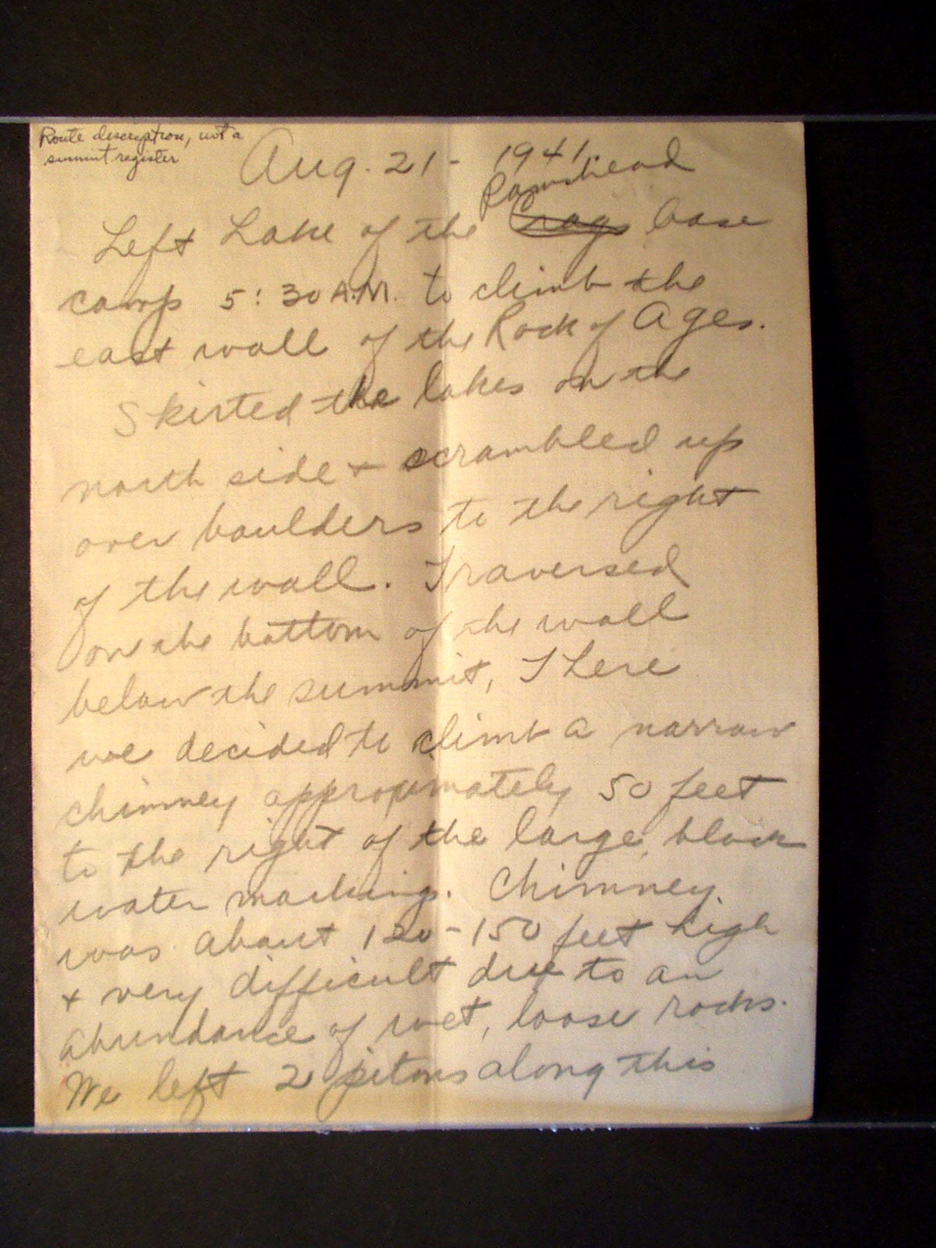 Route description, not a
summit register
Aug. 21 - 1941
Ramshead
Left Lake of the Crags base
camp 5:30 A.M. to climb the
east wall of the Rock of Ages.
Skirted the lakes on the
north side + scrambled up
over boulders to the right
of the wall. Traversed
on the bottom of the wall
below the summit, There
we decided to climb a narrow
chimney approximately 50 feet
to the right of the large, black
water marking. Chimney
was about 120-150 feet high
+ very difficult due to an
abundance of wet, loose rocks.
We left 2 pitons along this